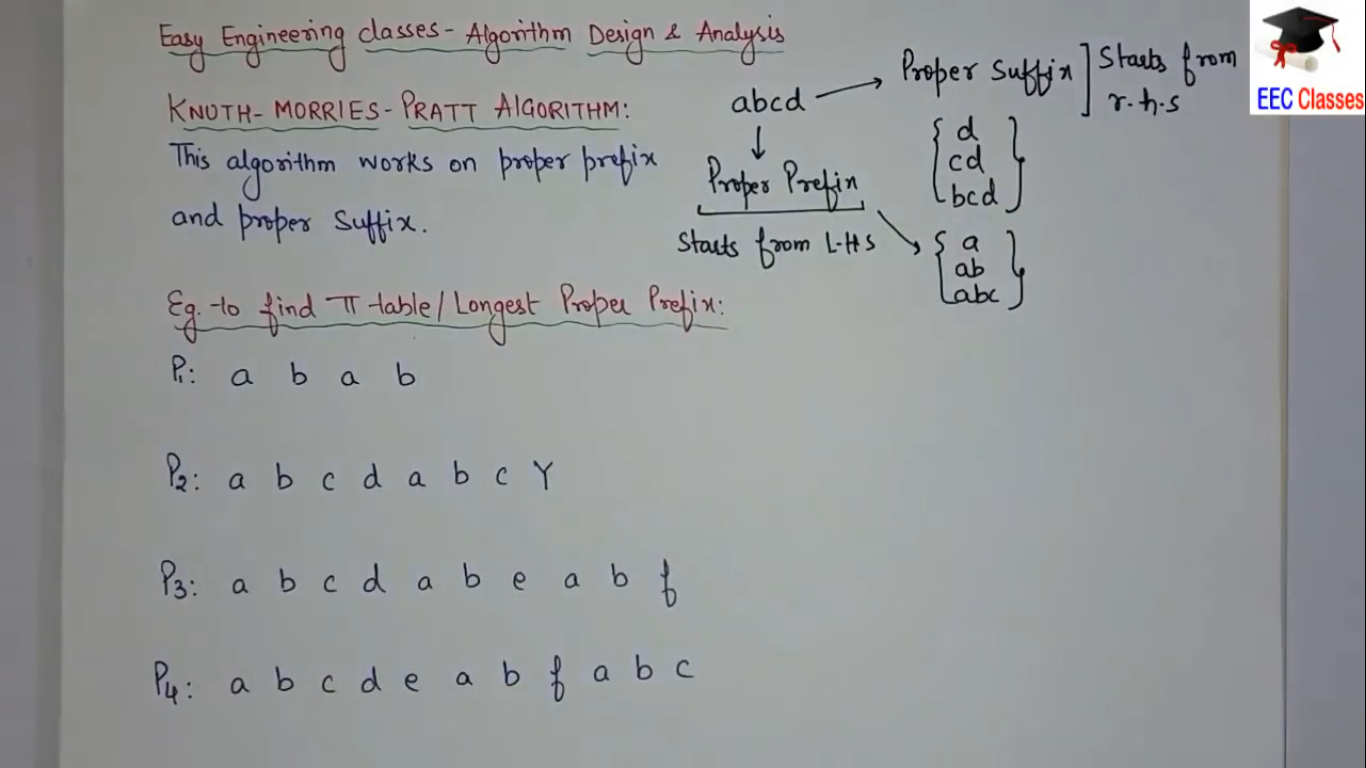 Easy Engineering classes - Algorithm Design & Analysis
KNUTH-MORRIES-PRATT ALGORITHM:
This algorithm works on proper prefix
and proper suffix.
abcd → Proper Suffix ] Starts from
r.h.s
{ d
cd
bcd }
Proper Prefix
Starts from L-HS
{ a
ab
abc }
Eg. to find π table/Longest Proper Prefix:
P1: a b a b
P2: a b c d a b c Y
P3: a b c d a b e a b f
P4: a b c d e a b f a b c
EEC Classes